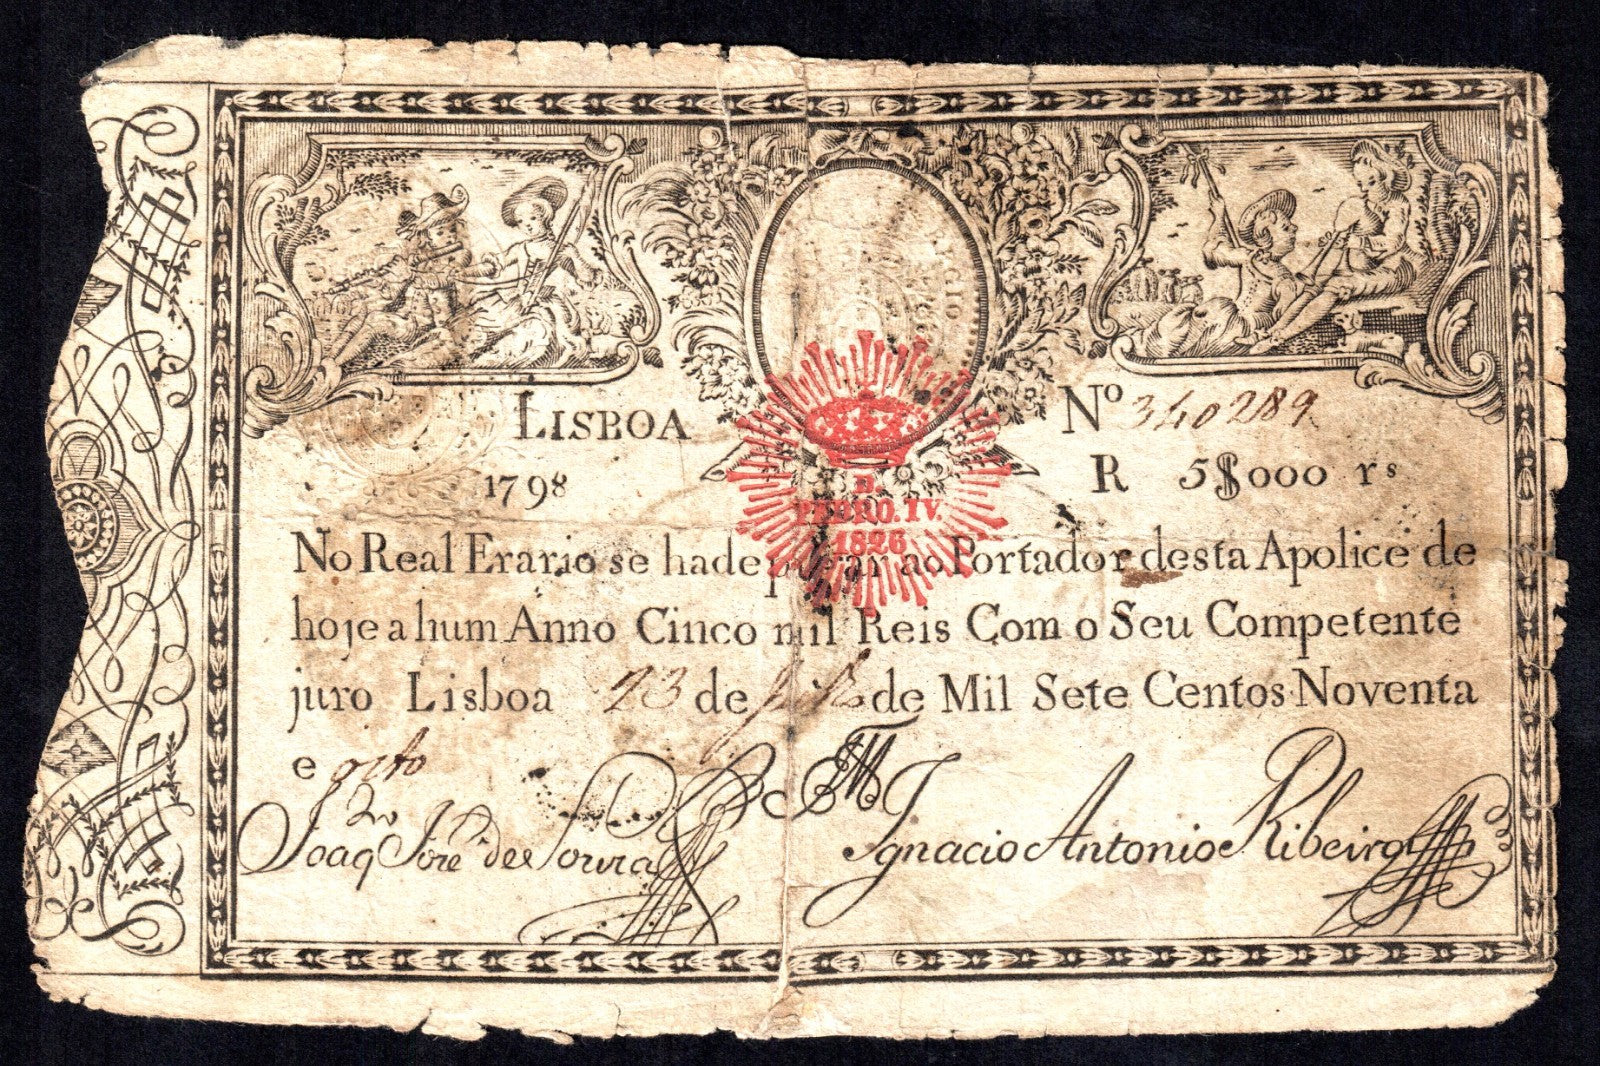 LISBOA
Nº 340289
1798
R 5$000 rs
D.
PEDRO. IV.
1826
No Real Erario se hade pagar ao Portador desta Apolice de
hoje a hum Anno Cinco mil Reis Com o Seu Competente
juro Lisboa 23 de de Mil Sete Centos Noventa
e oito
Ignacio Antonio Ribeiro